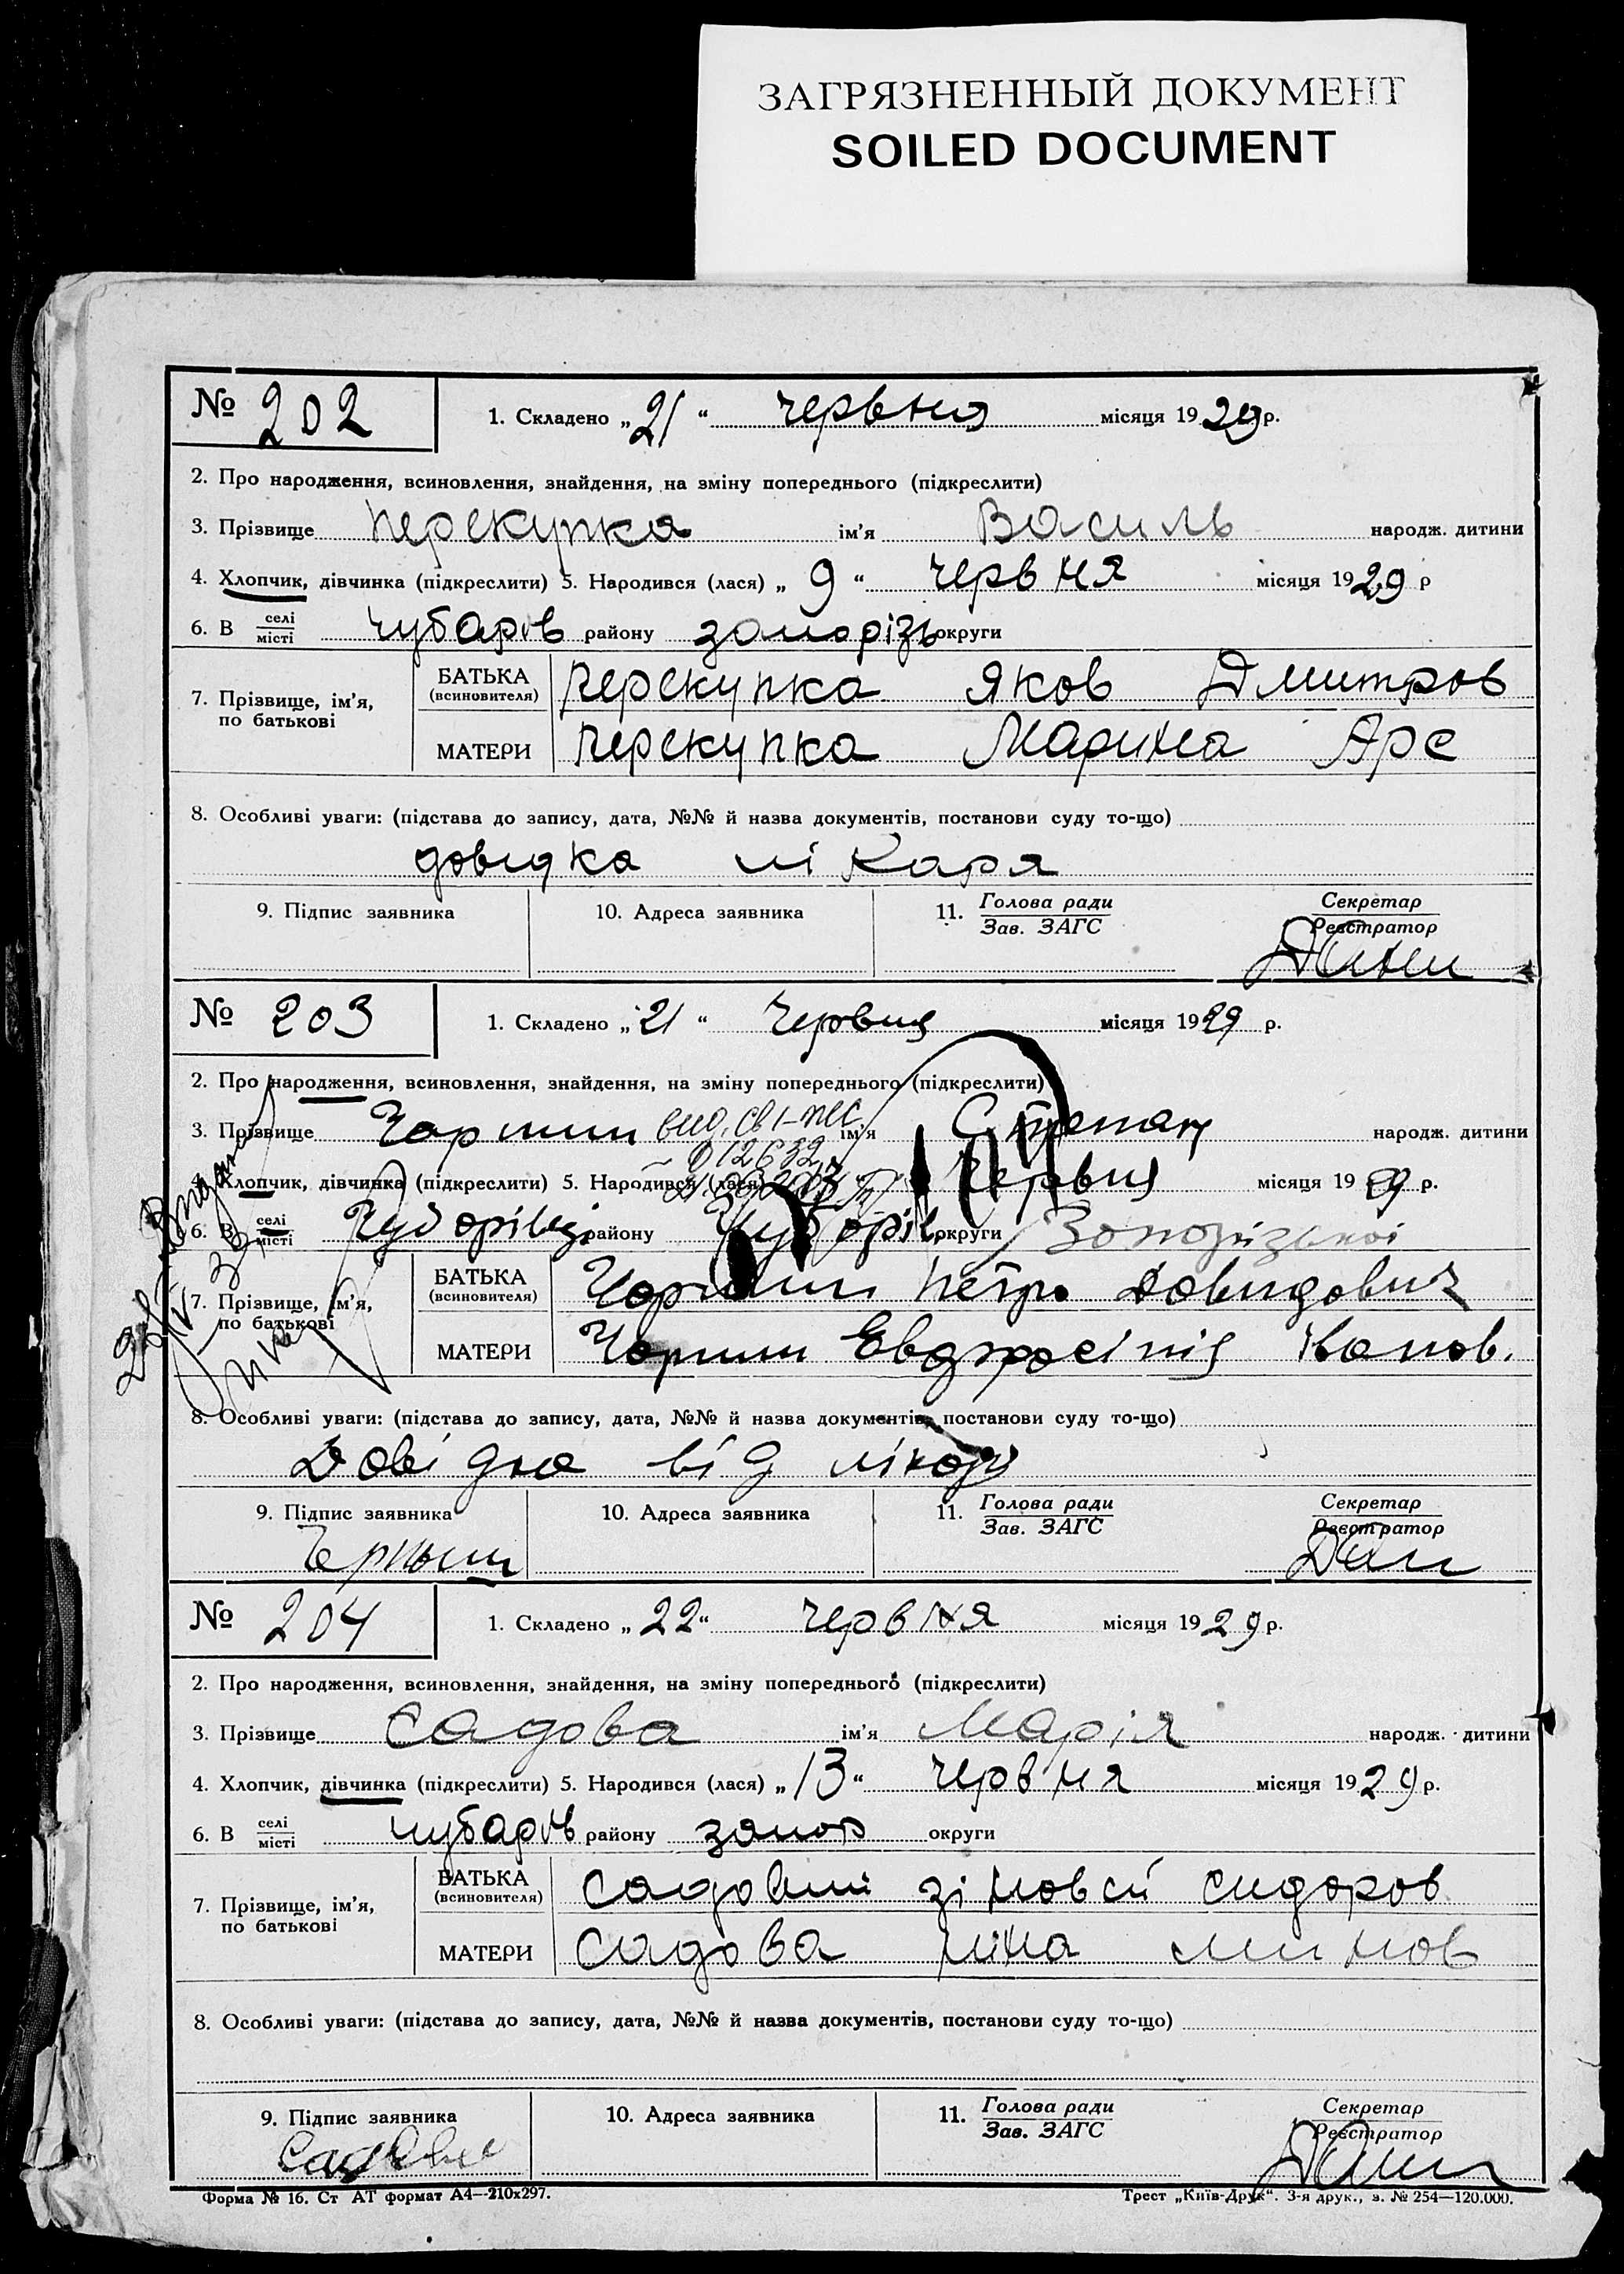 ЗАГРЯЗНЕННЫЙ ДОКУМЕНТ
SOILED DOCUMENT
№ 202 1. Складено „21“ червня місяця 1929 р.
2. Про народження, всиновлення, знайдення, на зміну попереднього (підкреслити)
3. Прізвище Перекупка ім'я Василь народж. дитини
4. Хлопчик, дівчинка (підкреслити) 5. Народився (лася) „9“ червня місяця 1929 р
6. В селі місті Чубарів району запорізь округи
7. Прізвище, ім'я, по батькові
БАТЬКА (всиновителя) Перекупка Яков Дмитров
МАТЕРИ Перекупка Марина Арс
8. Особливі уваги: (підстава до запису, дата, №№ й назва документів, постанови суду то-що)
довидка лікаря
9. Підпис заявника 10. Адреса заявника 11. Голова ради Зав. ЗАГС Секретар Реєстратор
№ 203 1. Складено „21“ Червня місяця 1929 р.
2. Про народження, всиновлення, знайдення, на зміну попереднього (підкреслити)
3. Прізвище ім'я Степан народж. дитини
4. Хлопчик, дівчинка (підкреслити) 5. Народився (лася) Червня місяця 1929 р.
6. В селі місті району округи
7. Прізвище, ім'я, по батькові
БАТЬКА (всиновителя) Петро Довидович
МАТЕРИ Іванов.
8. Особливі уваги: (підстава до запису, дата, №№ й назва документів, постанови суду то-що)
Довідка від лікаря
9. Підпис заявника 10. Адреса заявника 11. Голова ради Зав. ЗАГС Секретар Реєстратор
Черныш
№ 204 1. Складено „22“ червня місяця 1929 р.
2. Про народження, всиновлення, знайдення, на зміну попереднього (підкреслити)
3. Прізвище Садова ім'я Марія народж. дитини
4. Хлопчик, дівчинка (підкреслити) 5. Народився (лася) „13“ червня місяця 1929 р.
6. В селі місті Чубарів району запор округи
7. Прізвище, ім'я, по батькові
БАТЬКА (всиновителя) сидоров
МАТЕРИ Садова
8. Особливі уваги: (підстава до запису, дата, №№ й назва документів, постанови суду то-що)
9. Підпис заявника 10. Адреса заявника 11. Голова ради Зав. ЗАГС Секретар Реєстратор
Форма № 16. Ст АТ формат А4—210х297. Трест „Київ-Друк“. 3-я друк., з. № 254—120.000.